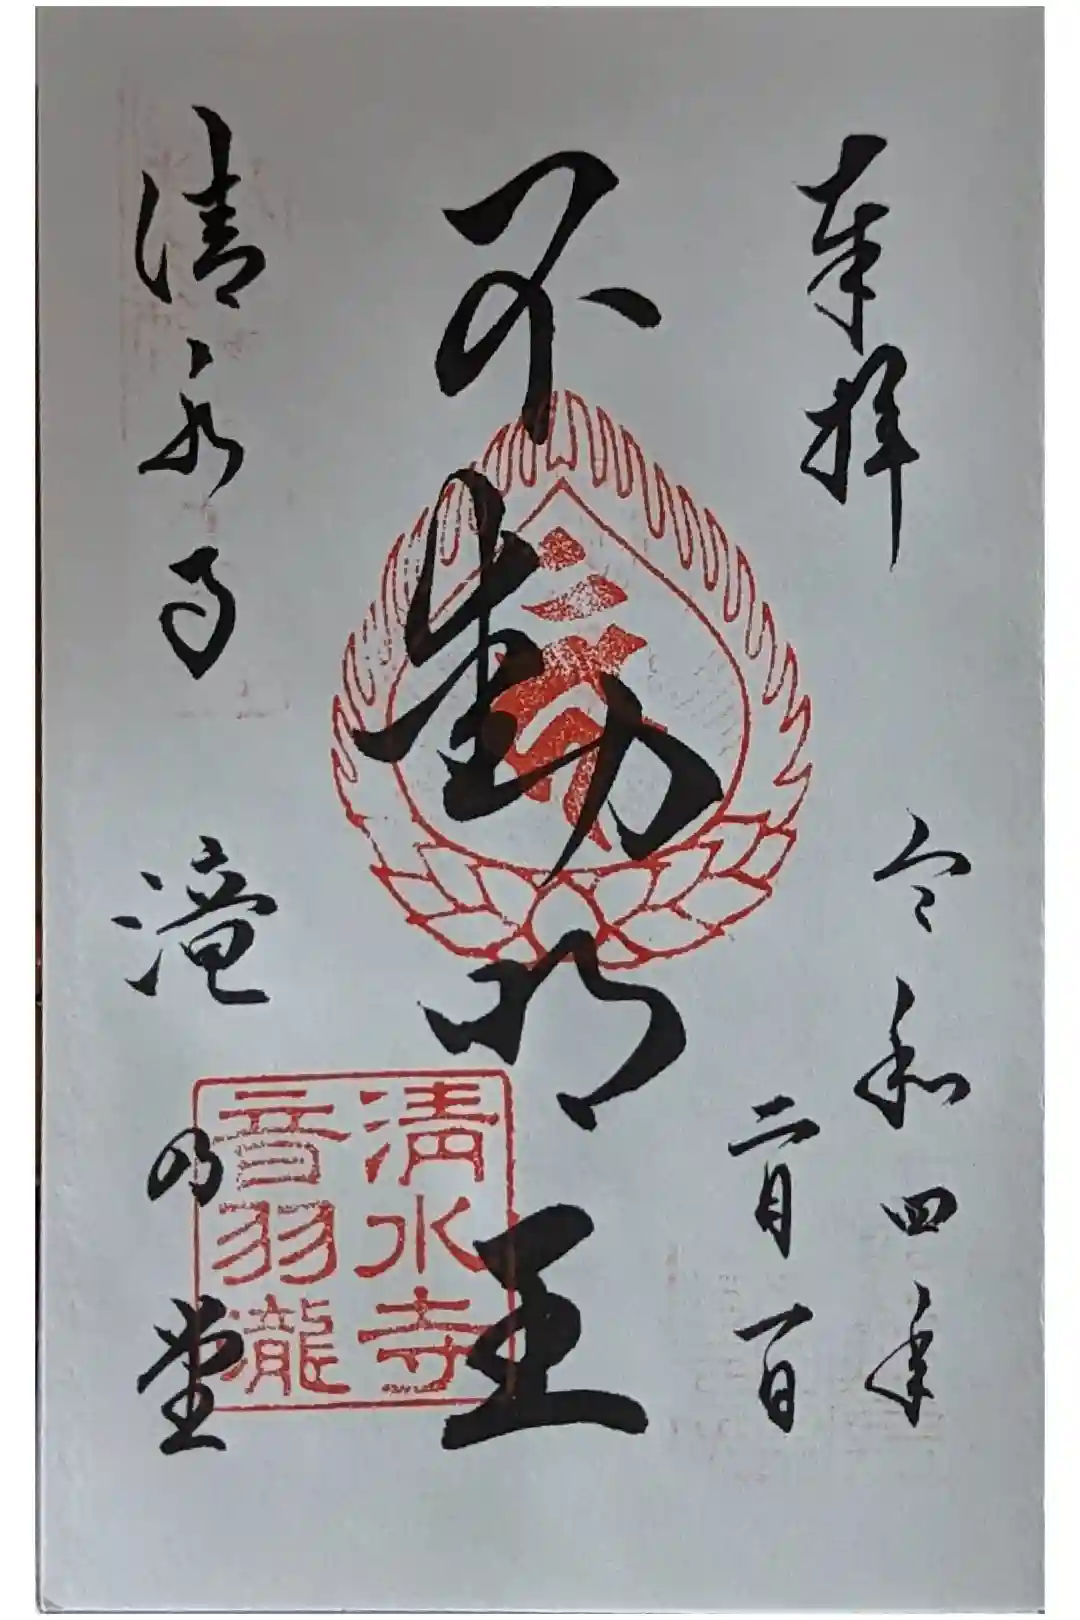 奉拝
令和四年
二月一日
不動明王
清水寺 滝の堂
清水寺
音羽瀧